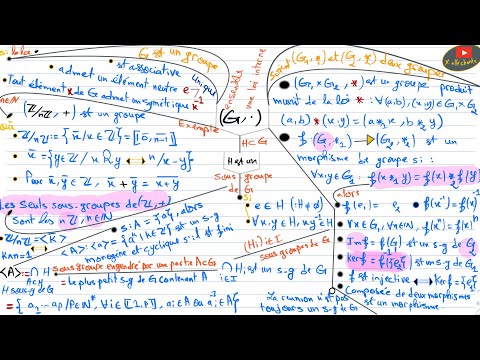 si la loi
G est un groupe
• est associative
• admet un élément neutre e
unique
• Tout élément x de G admet un symétrique x⁻¹
n∈ℕ
(ℤ/nℤ, +) est un groupe
ℤ/nℤ = {x̄ / x∈ℤ} = {0̄, ..., n-1}
x̄ = {y∈ℤ / x R y ⟺ n/x-y}
Pour x̄, ȳ ∈ ℤ, x̄ + ȳ = x+y
Exemple
Les seuls sous-groupes de (ℤ, +)
sont les nℤ, n∈ℕ
ℤ/nℤ = <k̄>
k∧n=1
• si A = {a}, alors
<A> = <a> = {aᵏ / k∈ℤ} est un s-g
monogène et cyclique si i fini
<A> := ∩ H
A⊂H
H sous-g de G
Sous groupe engendré par une partie A⊂G
= Le plus petit s-g de G contenant A
= {a₁ ... aₚ / p∈ℕ*, ∀i∈⟦1,p⟧, aᵢ∈A ou aᵢ⁻¹∈A}
ensemble
une loi interne
(G, .)
H⊂G
H est un
sous groupe
de G
si
• e∈H (H≠∅)
• ∀x,y∈H, xy⁻¹∈H
(Hi) i∈I
sous groupes de G
∩ Hi est un s-g de G
i∈I
La réunion n'est pas
toujours un s-g de G
Soient (G₁, *₁) et (G₂, *₂) deux groupes
• (G₁ × G₂, *) est un groupe produit
muni de la loi * : ∀(a,b), (x,y)∈G₁×G₂
(a,b) * (x,y) = (a *₁ x, b *₂ y)
• f: (G₁, *₁) → (G₂, *₂) est un
morphisme de groupe si :
∀x,y∈G₁ : f(x *₁ y) = f(x) *₂ f(y)
alors
• f(e₁) = e₂
• f(x⁻¹) = f(x)⁻¹
• ∀x∈G₁, ∀n∈ℤ, f(xⁿ) = f(x)ⁿ
• Im f = f(G₁) est un s-g de G₂
• Ker f = f⁻¹({e₂}) est un s-g de G₁
• f est injective ⟺ Ker f = {e₁}
• Composée de deux morphismes
est un morphisme